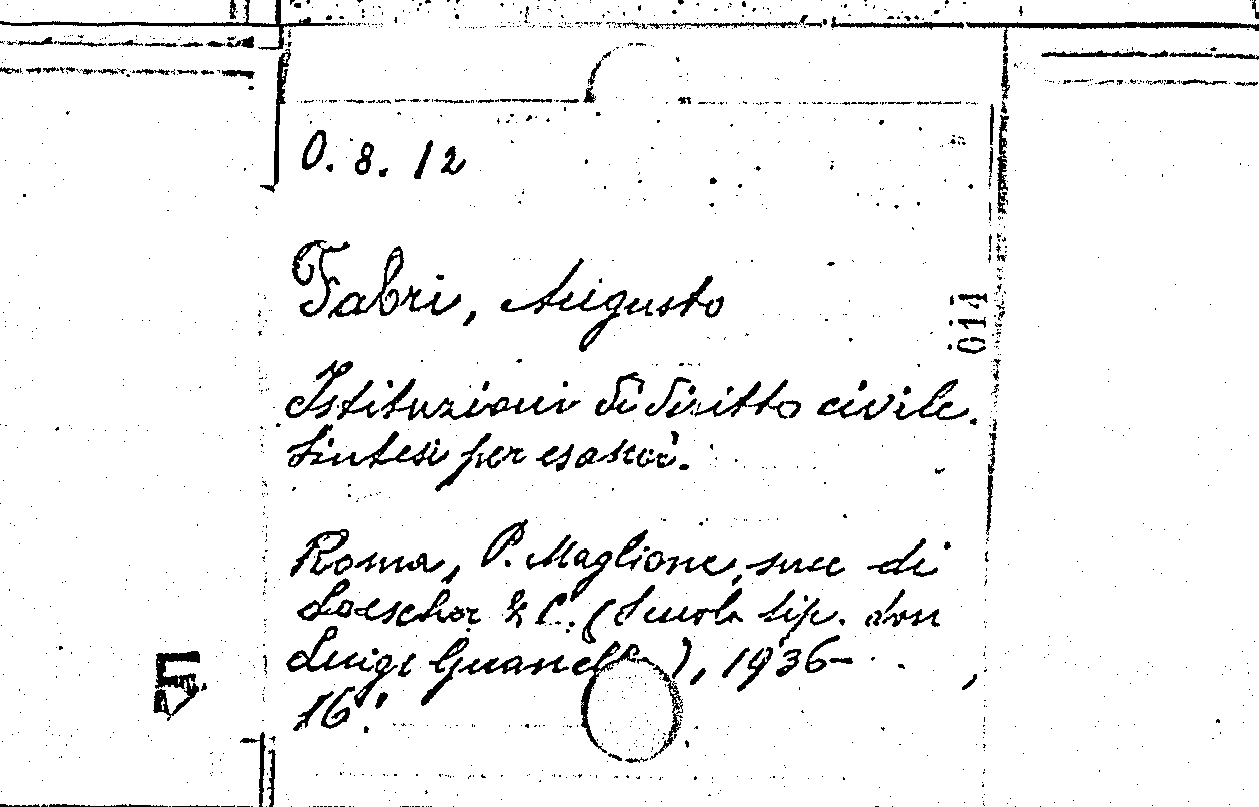 O. 8. 12
Fabri, Augusto
014
Istituzioni di diritto civile.
Sintesi per esami.
Roma, P. Maglione, succ di
Loescher & C. (Scuola tip. don
Luigi Guanella), 1936-
16°.